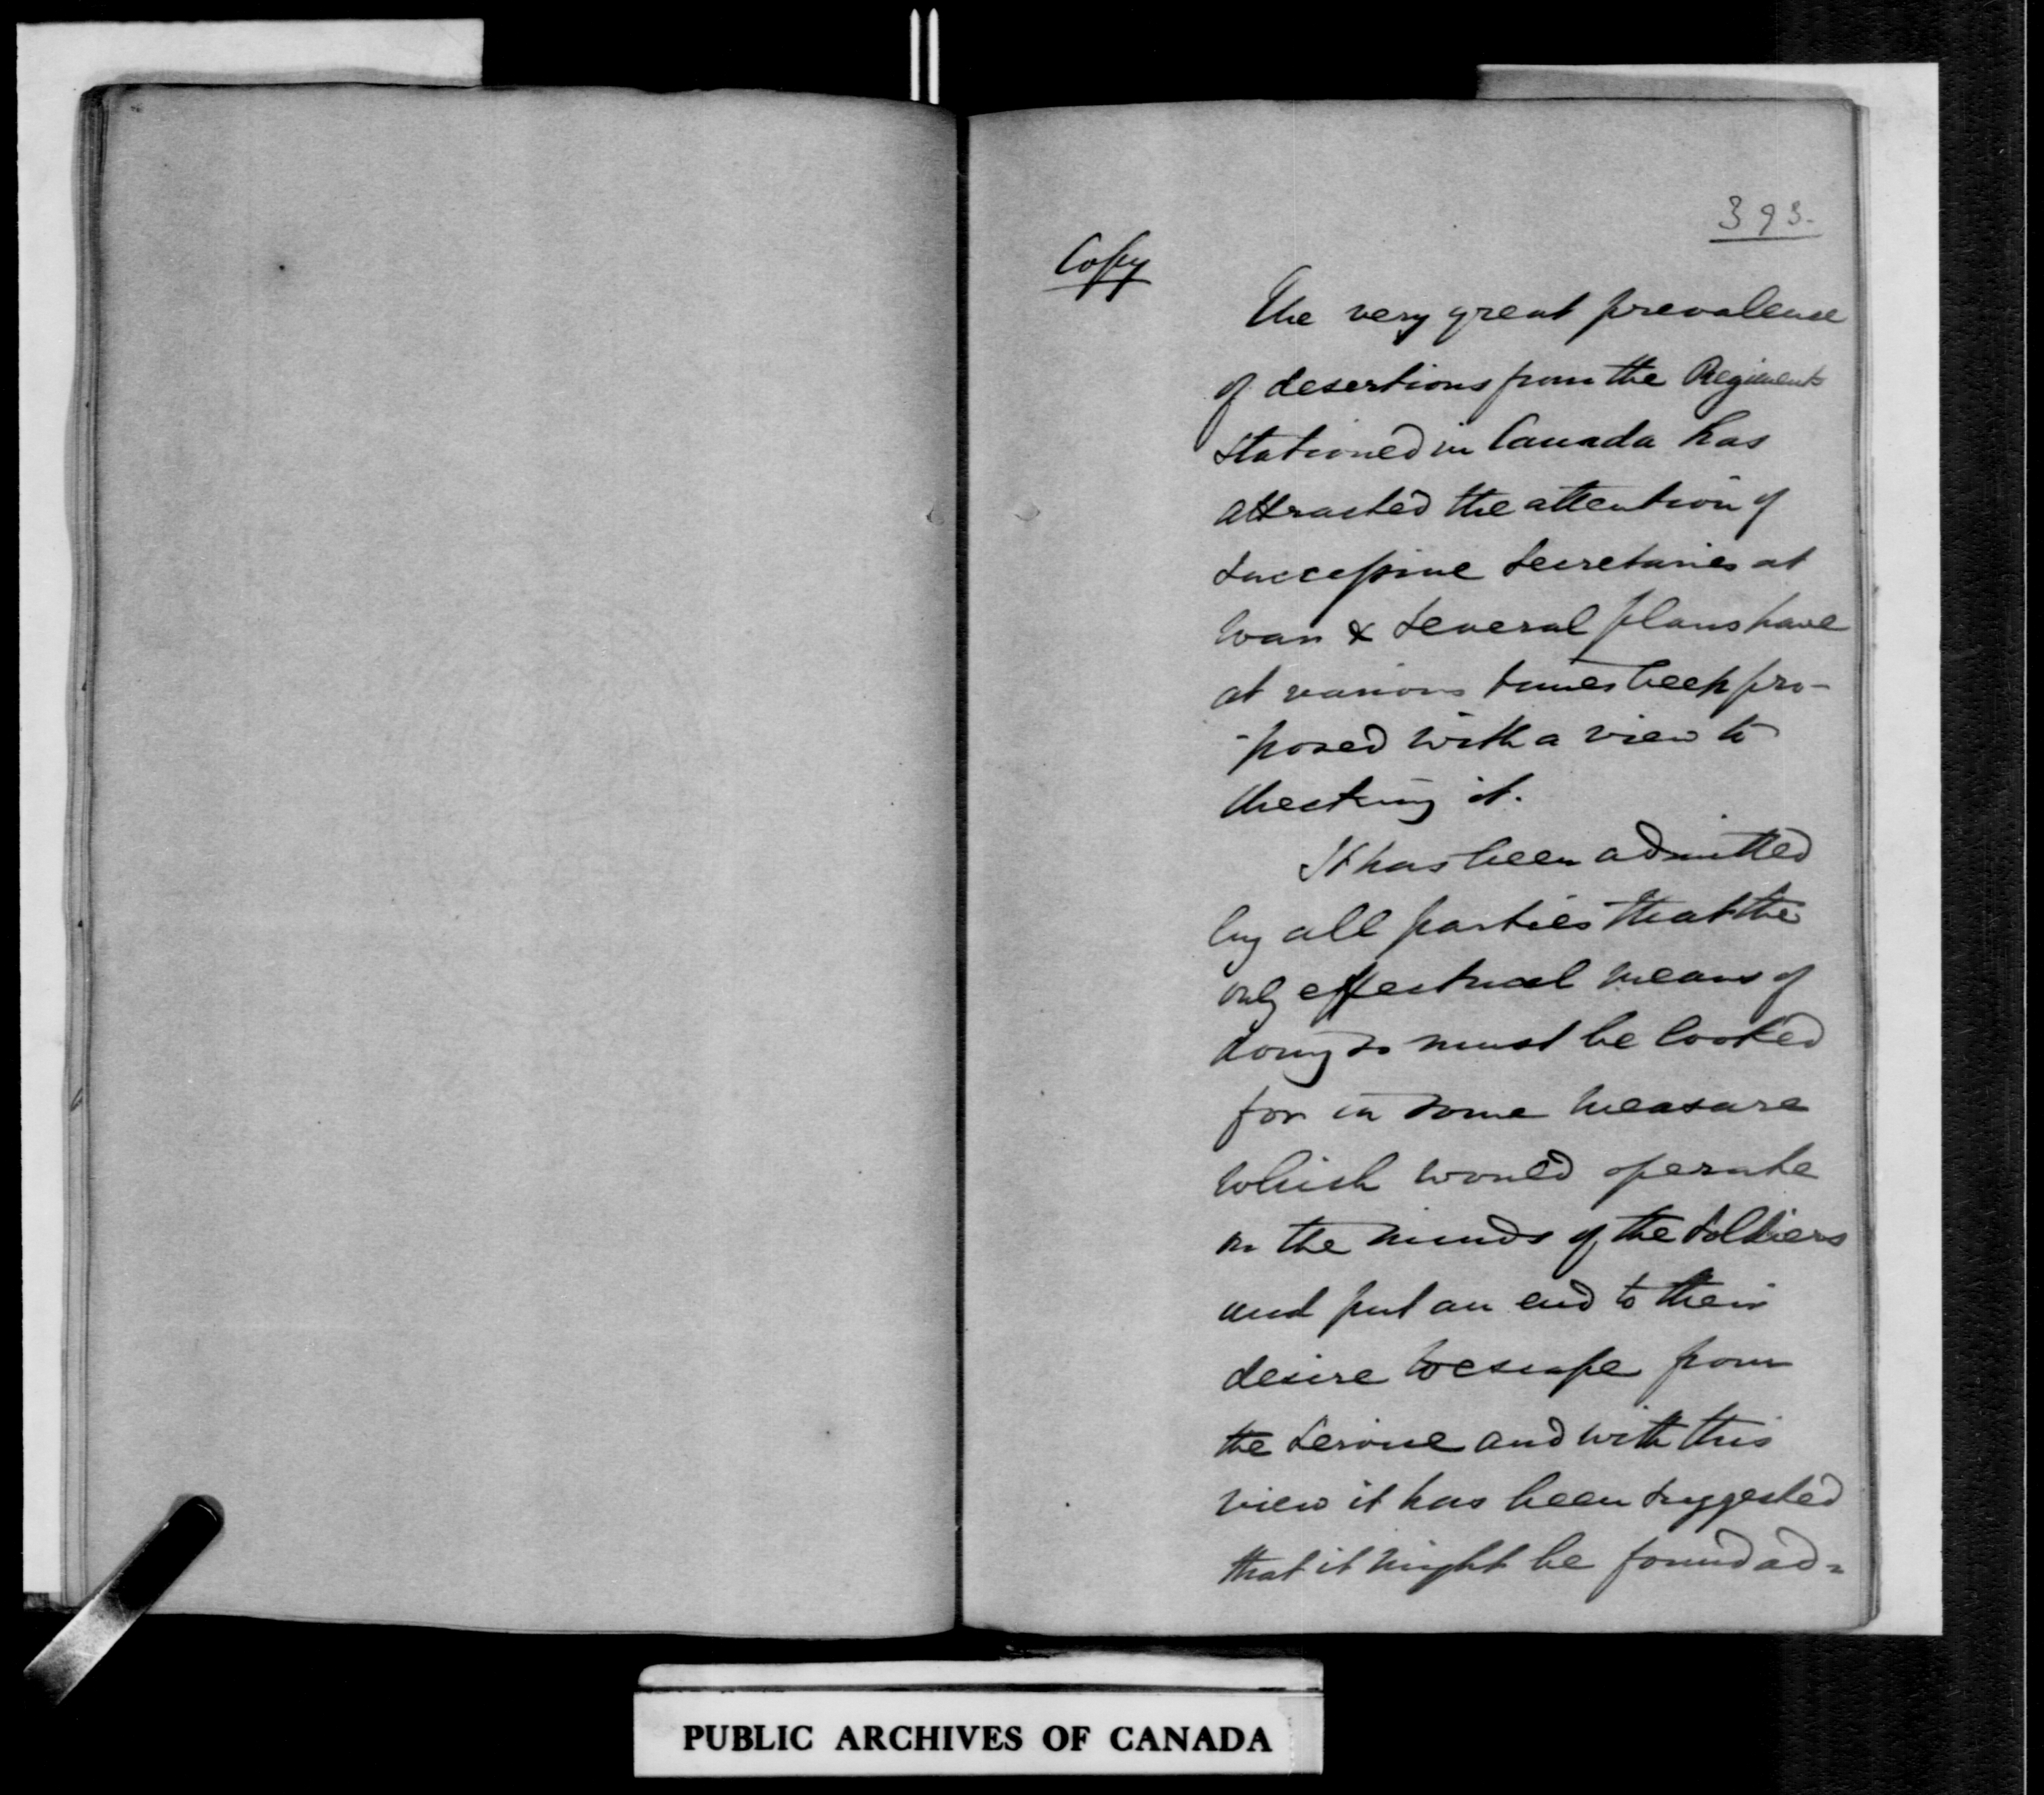 393.
Copy
The very great prevalence
of desertions from the Regiments
stationed in Canada has
attracted the attention of
successive Secretaries at
War & several plans have
at various times been pro-
-posed with a view to
checking it.
It has been admitted
by all parties that the
only effectual means of
doing so must be looked
for in some measure
which would operate
on the minds of the Soldiers
and put an end to their
desire to escape from
the Service and with this
view it has been suggested
that it might be found ad=
PUBLIC ARCHIVES OF CANADA